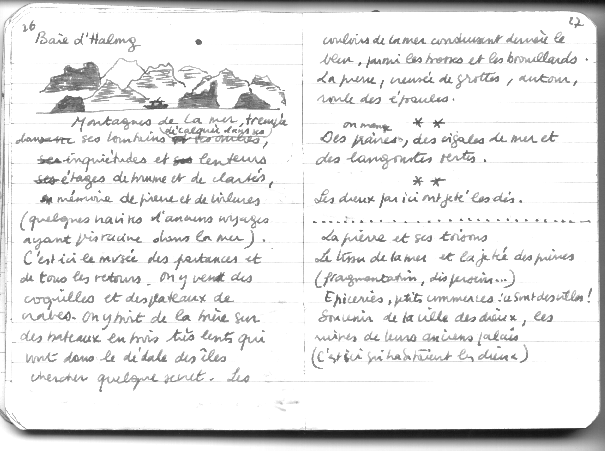 26
Baie d'Halong
Montagnes de la mer, trempé
dans ses lointains
décalqué dans
inquiétudes et lenteurs
étages de brume et de clartés,
mémoire de pierre et de
(quelques navires d'anciens voyages
ayant pris racine dans la mer).
C'est ici le musée des partances et
de tous les retours. On y vend des
coquilles et des plateaux de
crabes. On y boit de la bière sur
des bateaux en bois très lents qui
vont dans le dédale des îles
chercher quelque secret. Les
27
couloirs de la mer conduisant derrière le
bleu, parmi les brouillards.
La pierre, creusée de grottes, autour,
roule des épaules.
* *
on mange
Des praires, des cigales de mer et
des langoustes vertes.
* *
Les dieux par ici ont jeté les dés.
La pierre et ses toisons
Le tissu de la mer et la jetée des pierres
(fragmentation, dispersion...)
Epiceries, petits commerces : ce sont des villes !
Souvenir de la ville des dieux, les
ruines de leurs anciens palais
(C'est ici qu'habitaient les dieux)